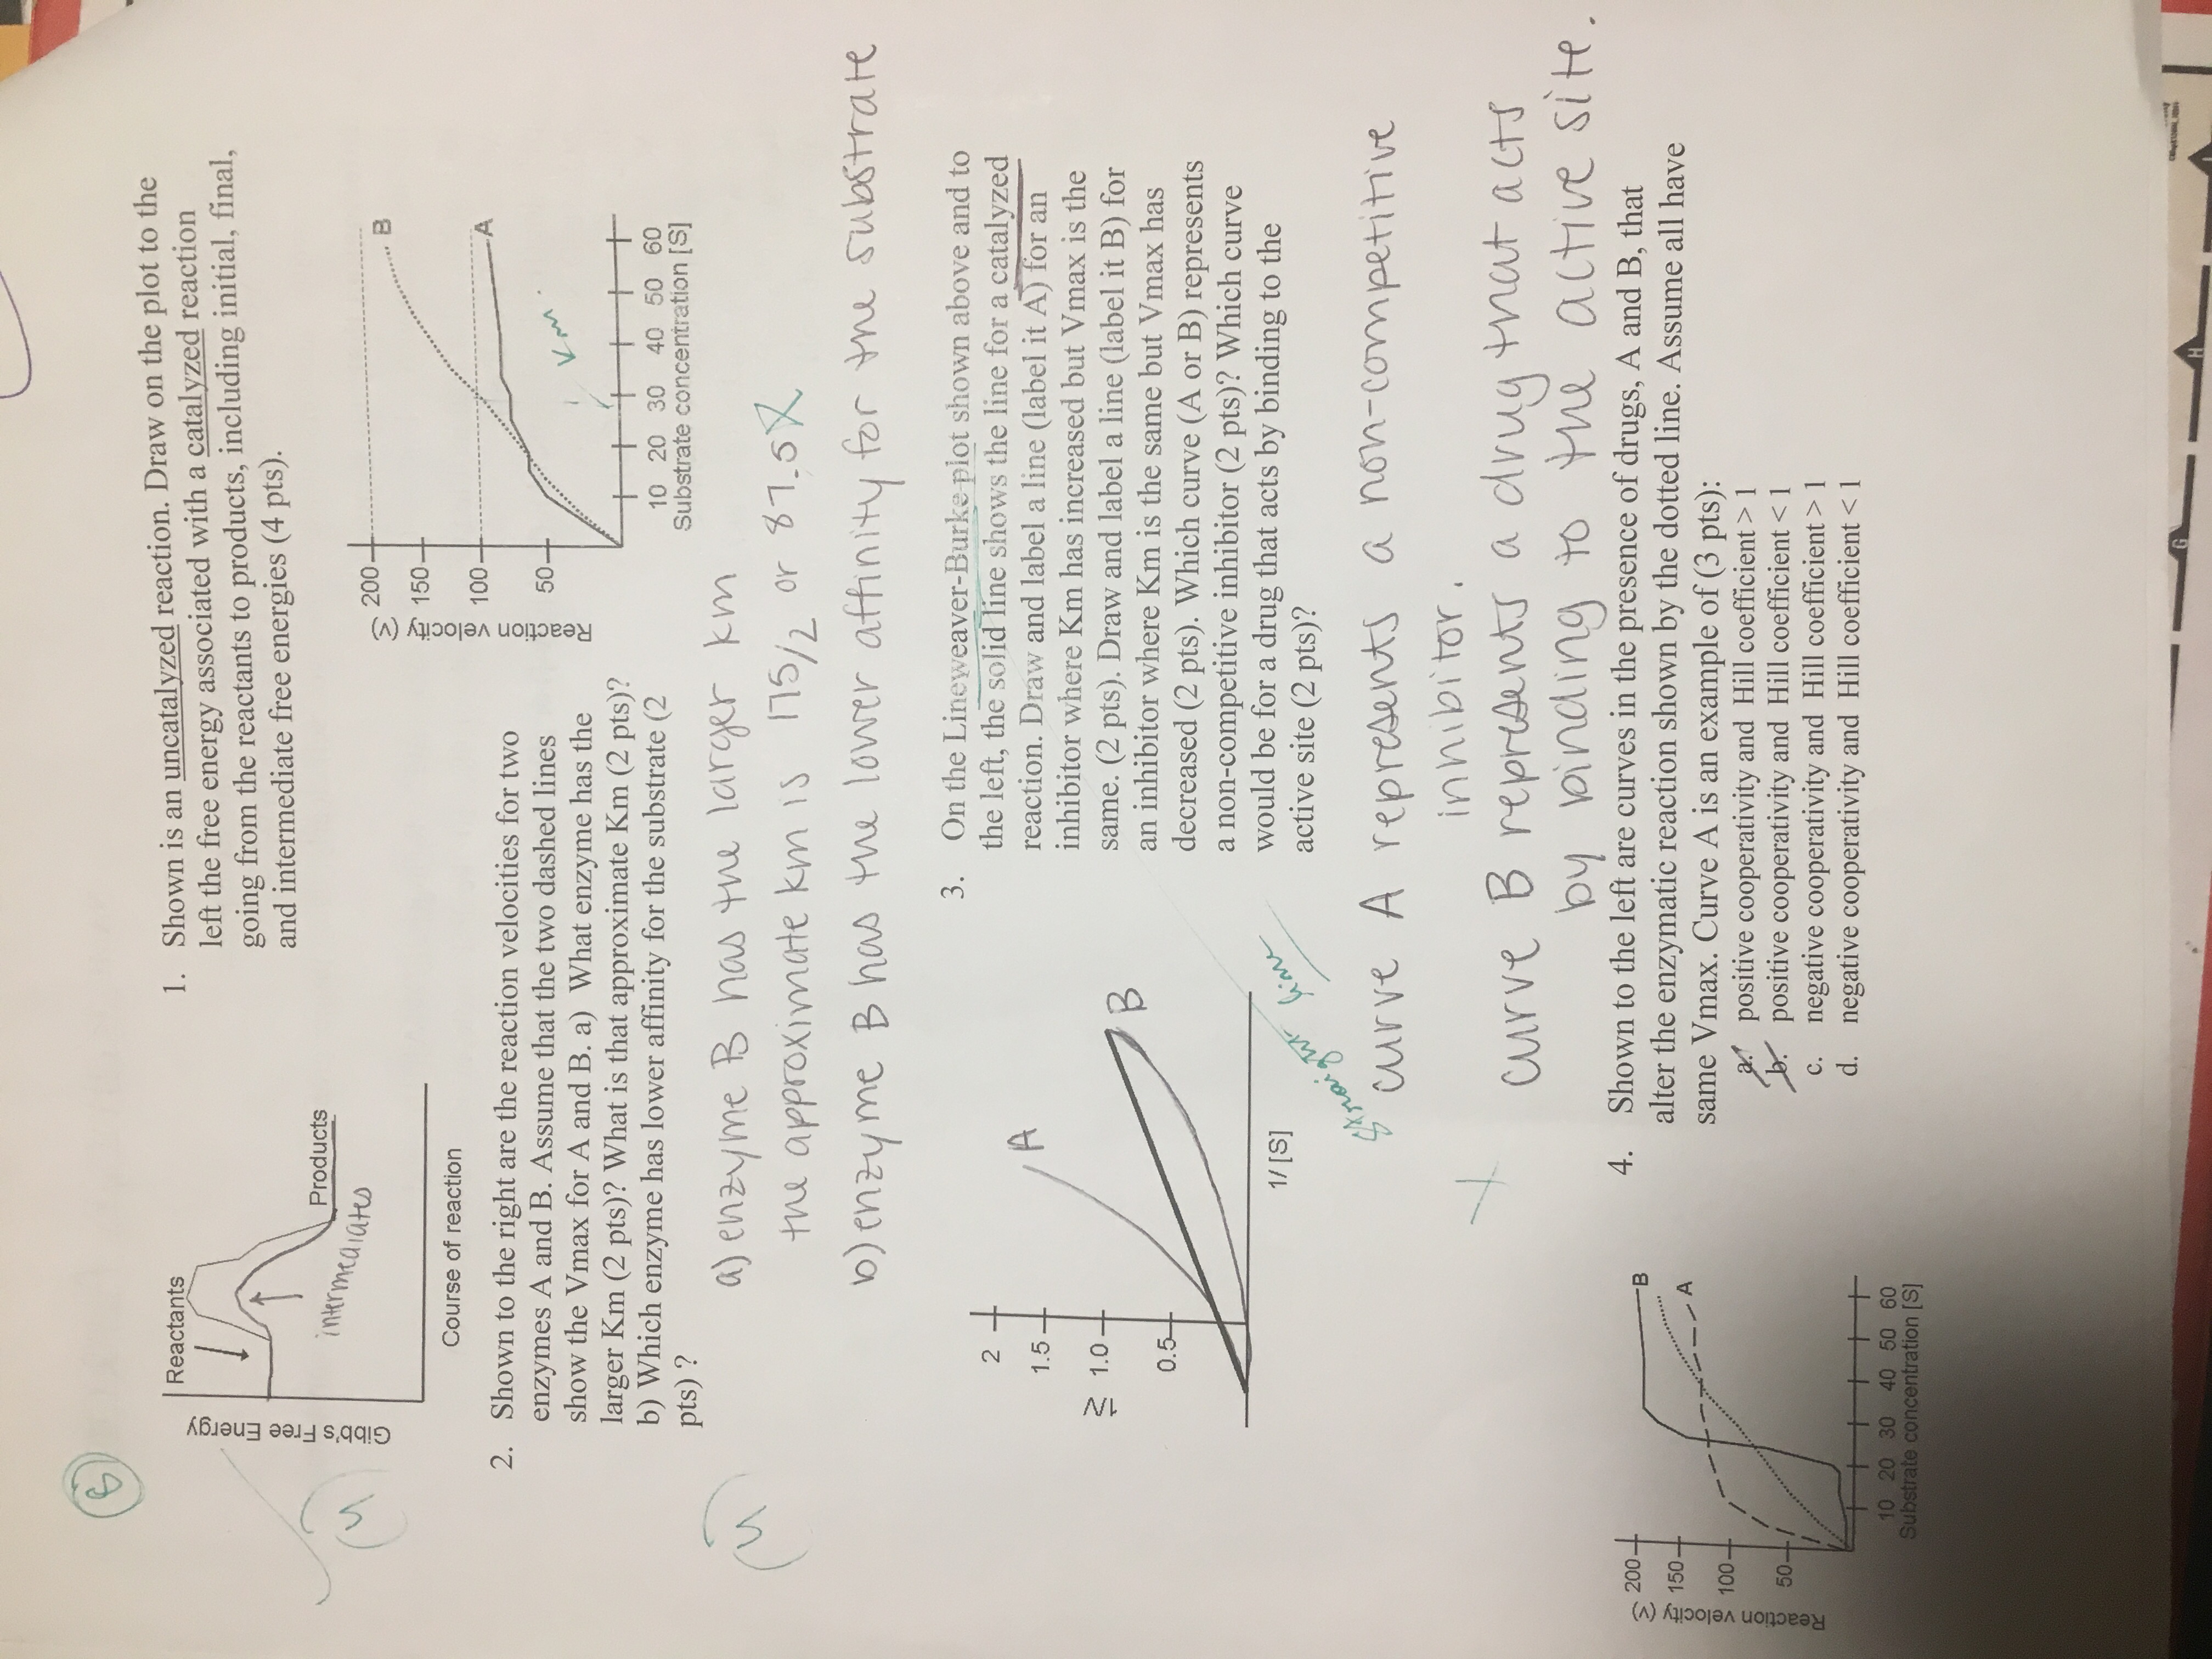 8
Reactants
Gibb's Free Energy
intermediates
Products
Course of reaction
(4)
1. Shown is an uncatalyzed reaction. Draw on the plot to the
left the free energy associated with a catalyzed reaction
going from the reactants to products, including initial, final,
and intermediate free energies (4 pts).
2. Shown to the right are the reaction velocities for two
enzymes A and B. Assume that the two dashed lines
show the Vmax for A and B. a) What enzyme has the
larger Km (2 pts)? What is that approximate Km (2 pts)?
b) Which enzyme has lower affinity for the substrate (2
pts) ?
Reaction velocity (v)
200
150
100
50
B
A
Km
10 20 30 40 50 60
Substrate concentration [S]
(4)
a) enzyme B has the larger km
the approximate km is 175/2 or 87.5 X
b) enzyme B has the lower affinity for the substrate
2
1.5
1.0
0.5
1/V
A
B
1/ [S]
straight line
3. On the Lineweaver-Burke plot shown above and to
the left, the solid line shows the line for a catalyzed
reaction. Draw and label a line (label it A) for an
inhibitor where Km has increased but Vmax is the
same. (2 pts). Draw and label a line (label it B) for
an inhibitor where Km is the same but Vmax has
decreased (2 pts). Which curve (A or B) represents
a non-competitive inhibitor (2 pts)? Which curve
would be for a drug that acts by binding to the
active site (2 pts)?
curve A represents a non-competitive
inhibitor.
X
curve B represents a drug that acts
by binding to the active site.
Reaction velocity (v)
200
150
100
50
B
A
10 20 30 40 50 60
Substrate concentration [S]
4. Shown to the left are curves in the presence of drugs, A and B, that
alter the enzymatic reaction shown by the dotted line. Assume all have
same Vmax. Curve A is an example of (3 pts):
a. positive cooperativity and Hill coefficient > 1
b. positive cooperativity and Hill coefficient < 1
c. negative cooperativity and Hill coefficient > 1
d. negative cooperativity and Hill coefficient < 1
G
H